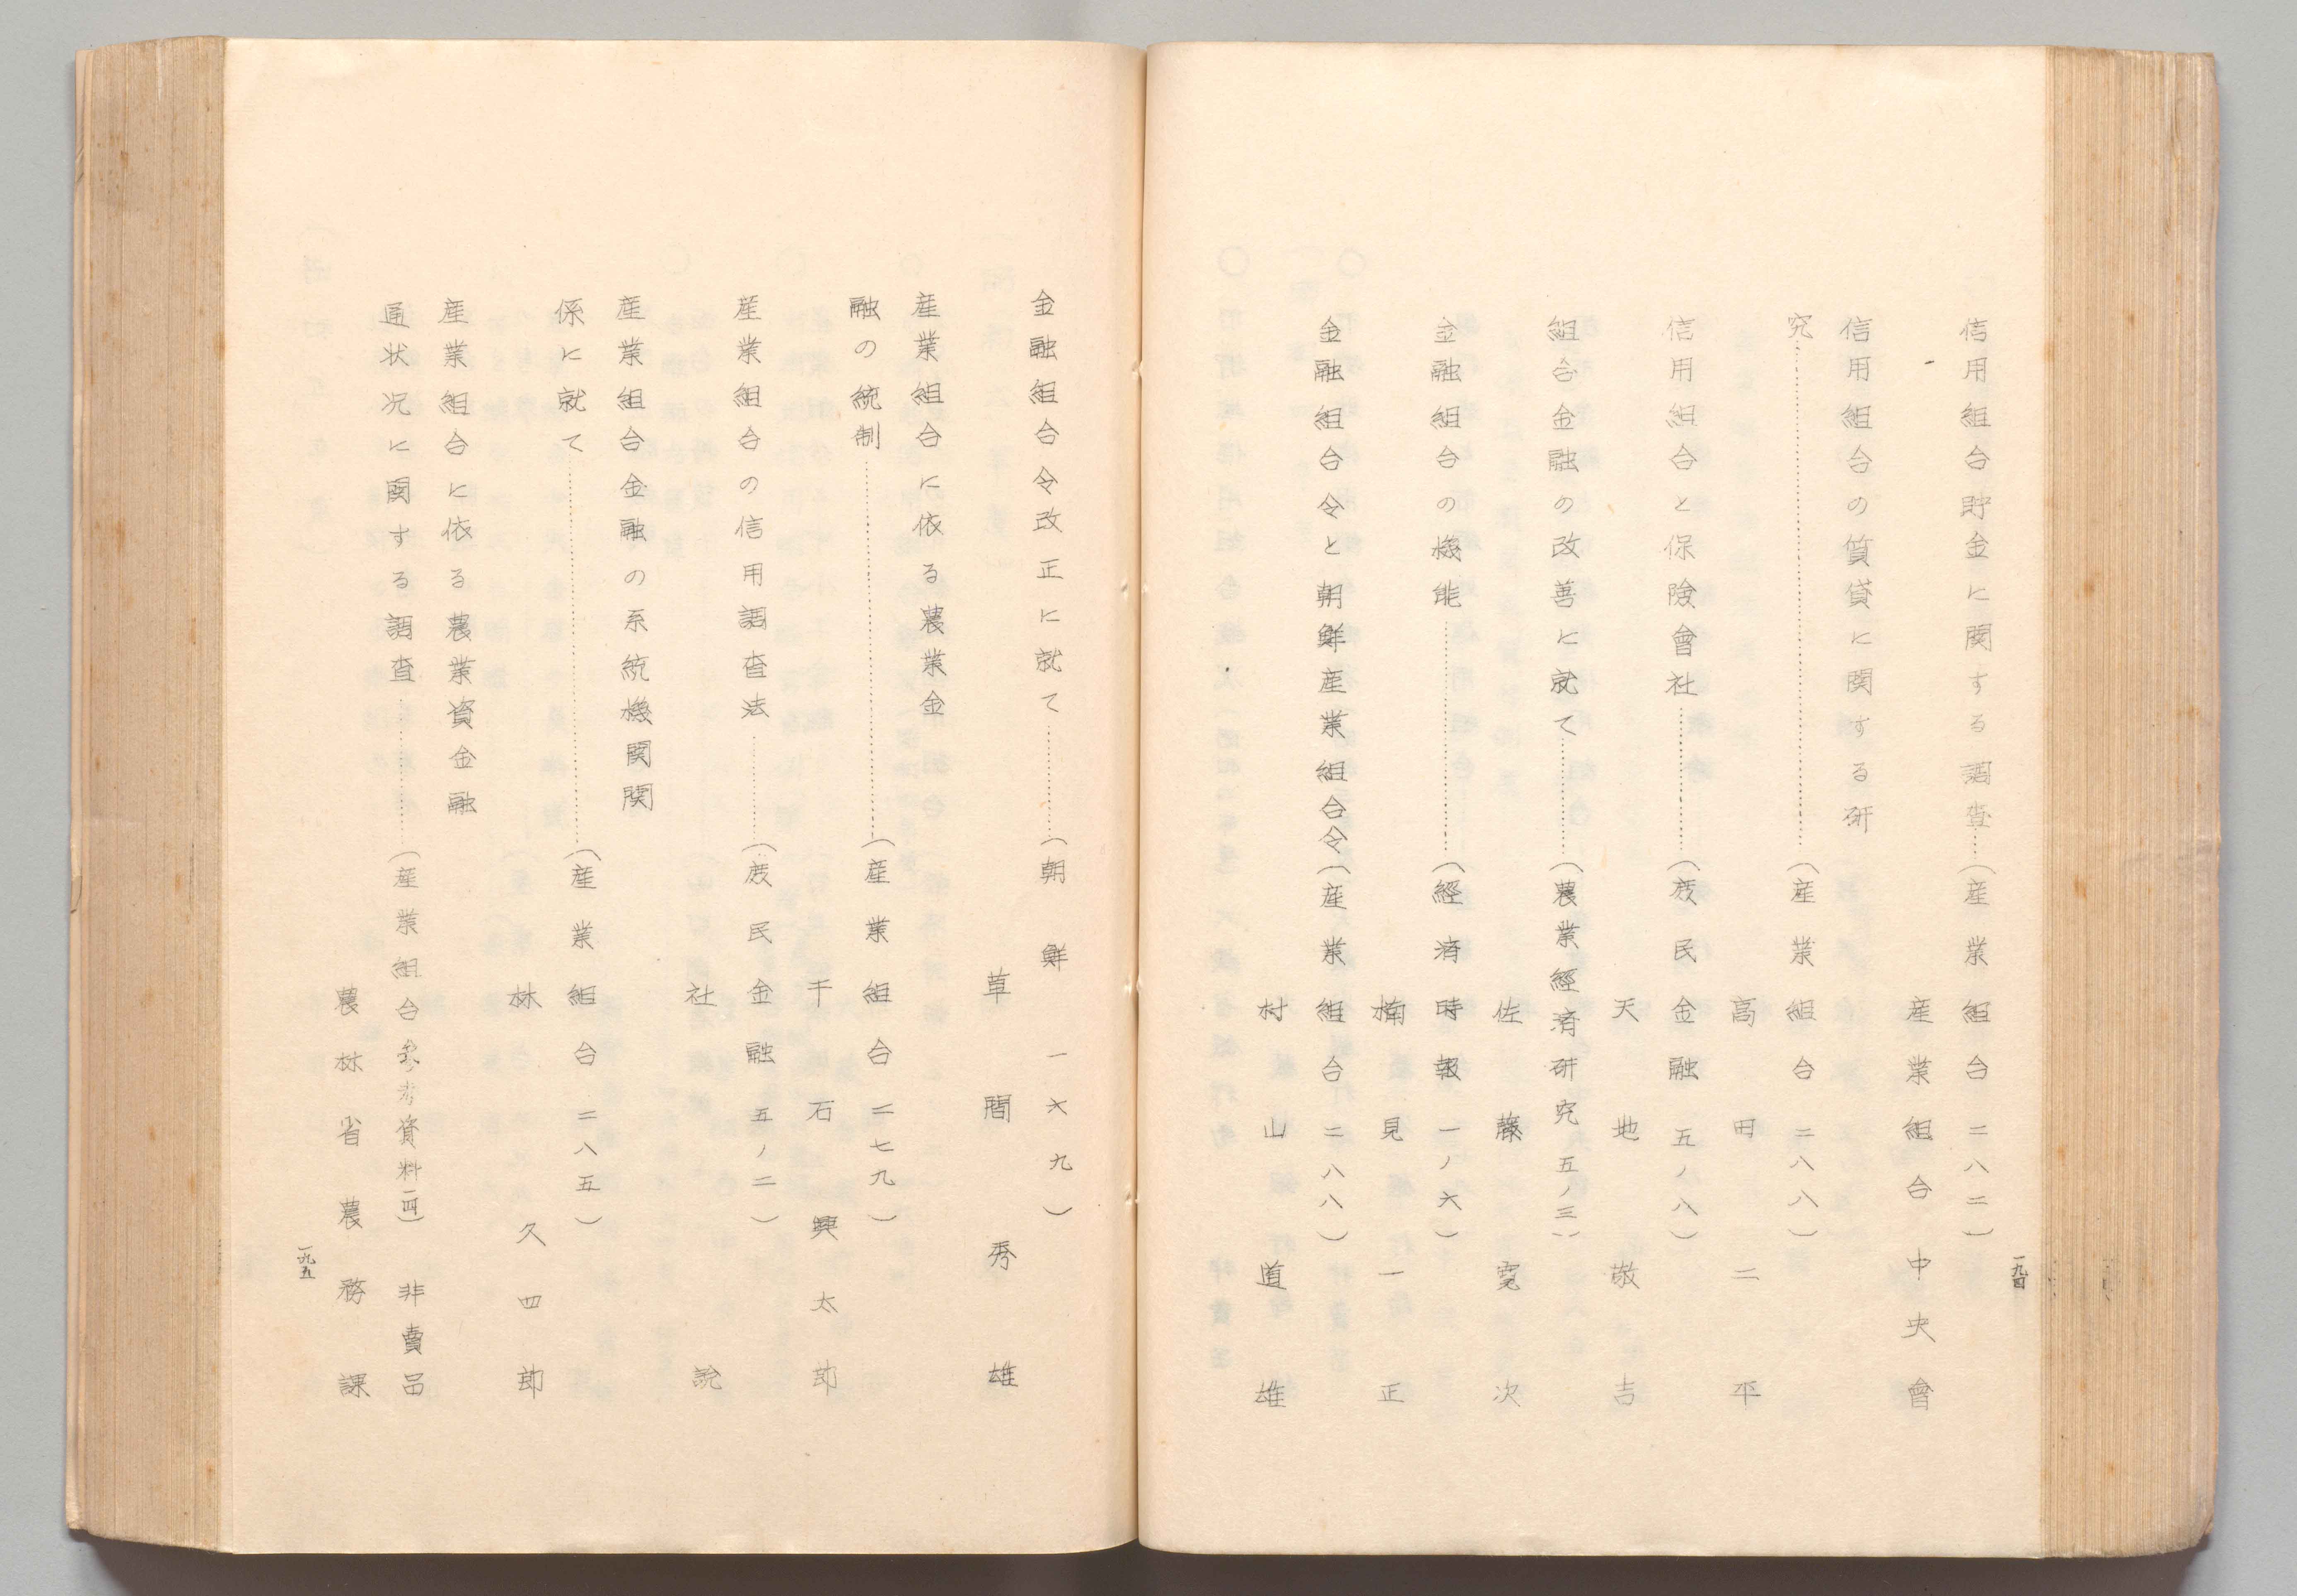 信用組合貯金に関する調査…（産業組合二八二）
産業組合中央會
信用組合の質貸に関する研
究………（産業組合二八八）
高田二平
信用組合と保険會社………（庶民金融五ノ八）
天地敬吉
組合金融の改善に就て………（農業経済研究五ノ三）
佐藤寛次
金融組合の機能………（經済時報一ノ六）
楠見一正
金融組合令と朝鮮産業組合令（産業組合二八八）
村山道雄
一九四
金融組合令改正に就て………（朝鮮一六九）
草間秀雄
産業組合に依る農業金
融の統制………（産業組合二七九）
千石興太郎
産業組合の信用調査法………（庶民金融五ノ二）
社説
産業組合金融の系統機関関
係に就て………（産業組合二八五）
林久四郎
産業組合に依る農業資金融
通状況に関する調査………（産業組合参考資料一四）非賣品
農林省農務課
一九五